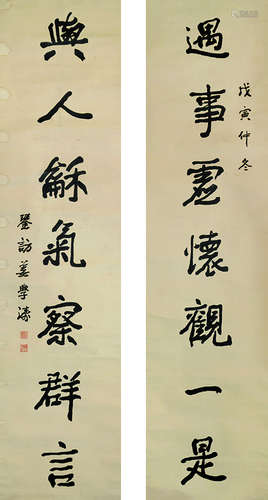 遇事虛懷觀一是
戊寅仲冬
與人龢氣察群言
姜學濤